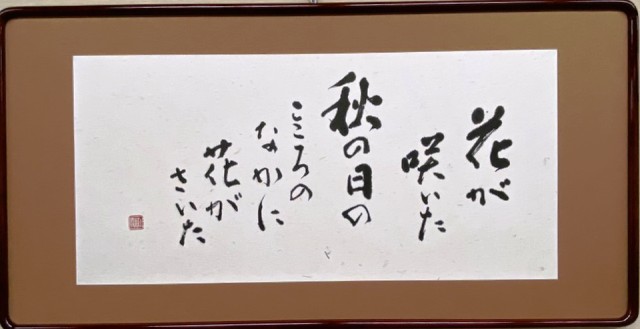 花が
咲いた
秋の日の
こころの
なかに
花が
さいた